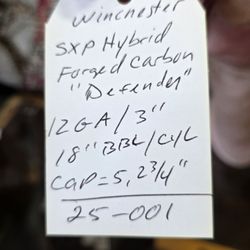 Winchester
SXP Hybrid
Forged Carbon
"Defender"
12GA/3"
18" BBL/CYL
CAP=5, 2 3/4"
25-001